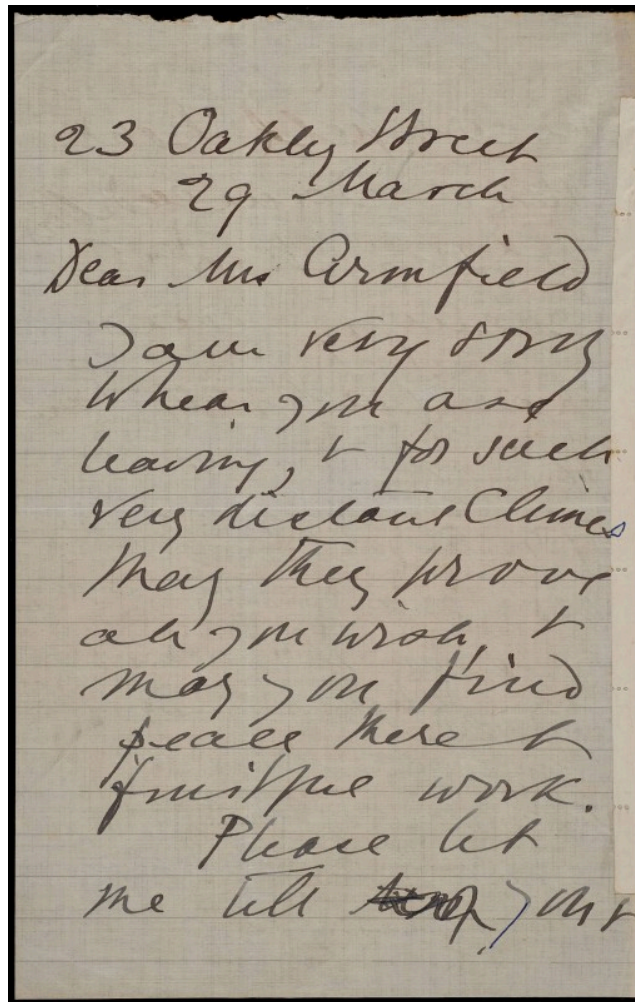 23 Oakley Street
29 March
Dear Mrs Armfield
I am very sorry
to hear you are
leaving, & for such
very distant Climes
May they prove
all you wish, &
may you find
peace there &
fruitful work.
Please let
me tell